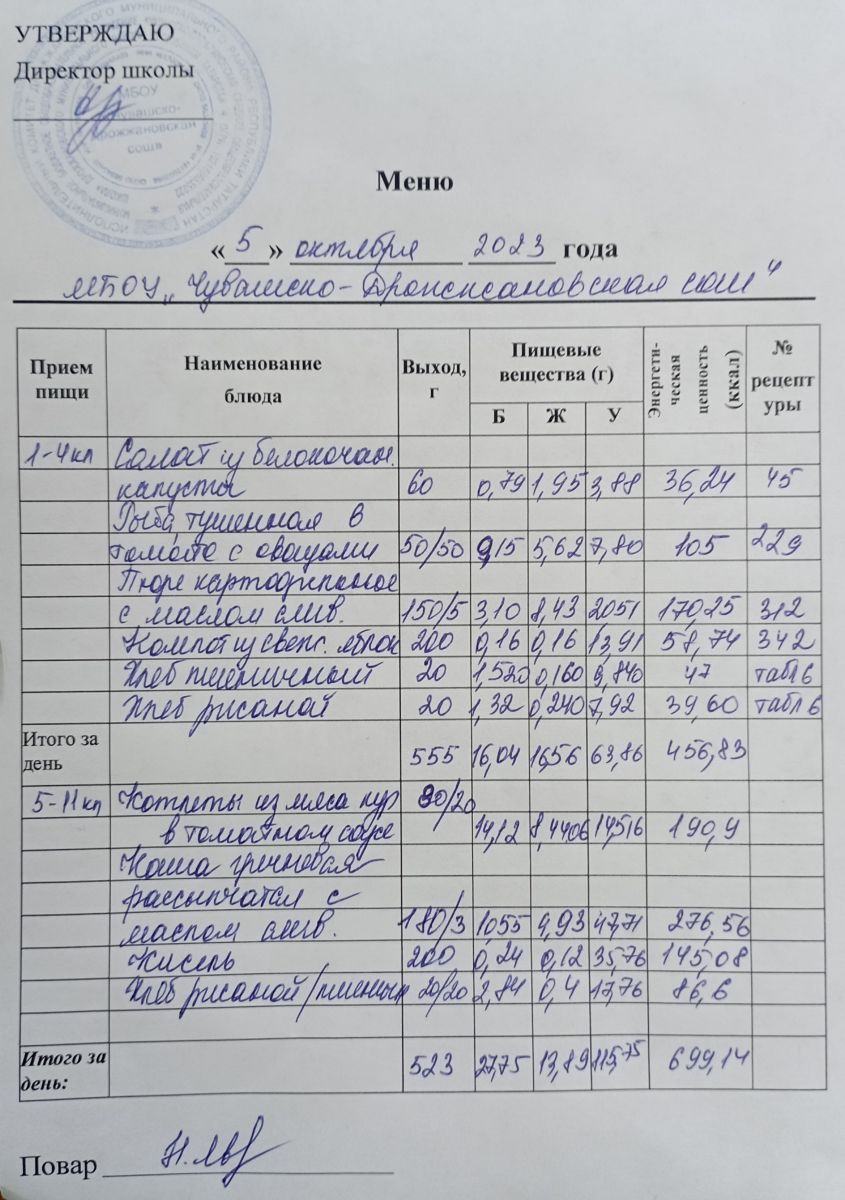 УТВЕРЖДАЮ
Директор школы
МБОУ
Чувашско-
Дрожжановская
сош
Меню
« 5 » октября 2023 года
МБОУ „Чувашско-Дрожжановская сош"
Прием пищи Наименование блюда Выход, г Пищевые вещества (г) Энергети-ческая ценность (ккал) № рецептуры
Б Ж У
1-4кл Салат из белокочан.
капусты 60 0,79 1,95 3,88 36,24 45
Рыба, тушенная в
томате с овощами 50/50 9,15 5,62 7,80 105 229
Пюре картофельное
с маслом слив. 150/5 3,10 8,43 2051 170,25 312
Компот из свеж. яблок 200 0,16 0,16 13,91 58,74 342
Хлеб пшеничный 20 1,520 0,160 9,840 47 табл 6
Хлеб ржаной 20 1,32 0,240 7,92 39,60 табл 6
Итого за день 555 16,04 16,56 63,86 456,83
5-11кл Котлеты из мяса кур 90/20
в томатном соусе 14,12 8,4406 14,516 190,9
Каша гречневая
рассыпчатая с
маслом слив. 180/3 1055 4,93 47,71 276,56
Кисель 200 0,24 0,12 35,76 145,08
Хлеб ржаной/пшенич 20/20 2,84 0,4 17,76 86,6
Итого за день: 523 27,75 13,89 115,75 699,14
Повар